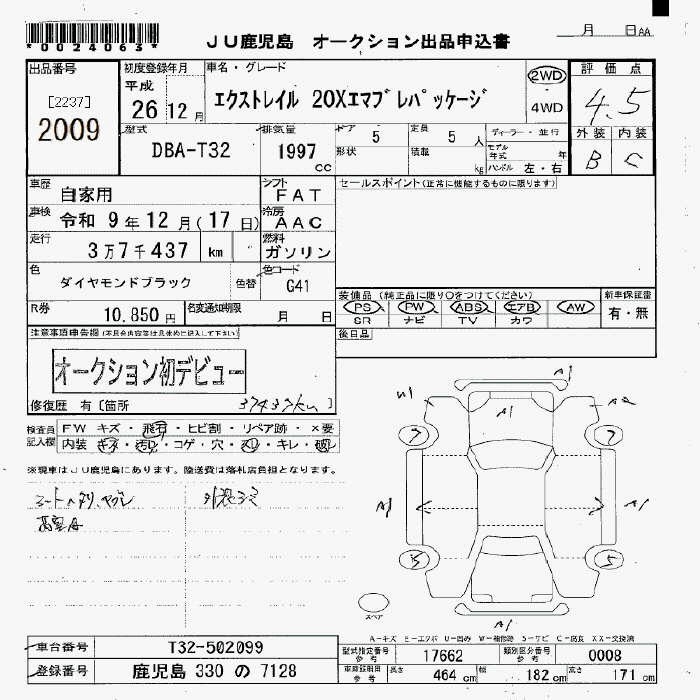 *0024063*
ＪＵ鹿児島　オークション出品申込書
月　日AA
出品番号
[2237]
2009
初度登録年月
平成
26 12月
車名・グレード
エクストレイル 20Xエマブレパッケージ
2WD
・
4WD
評価点
4.5
外装 内装
B C
型式
DBA-T32
排気量
1997
cc
ドア 5
定員 5 人
形状
積載 kg
ディーラー・並行
モデル年式 年
ハンドル 左・右
車歴
自家用
シフト
FAT
セールスポイント(正常に機能するものに限ります)
車検
令和 9年12月(17日)
冷房
AAC
走行
3万7千437 km
燃料
ガソリン
色
ダイヤモンドブラック 色替
色コード
G41
R券
10,850円
名変通知期限
月 日
装備品(純正品に限り○をつけてください)
PS PW ABS エアB AW
SR ナビ TV カワ
新車保証書
有・無
後日品
注意事項申告欄(不具合内容等は具体的に記入して下さい)
オークション初デビュー
修復歴 有〔箇所
37437km 〕
検査員記入欄
FW キズ・飛石・ヒビ割・リペア跡・×要
内装 キズ・汚れ・コゲ・穴・スリ・キレ・破
※現車はＪＵ鹿児島にあります。陸送費は落札店負担となります。
A1
W1
A1
A2
7
7
A1
A1
5
5
スペア
A1
A-キズ E-エクボ U-凹み W-補修跡 S-サビ C-腐食 XX-交換済
車台番号
T32-502099
登録番号
鹿児島 330 の 7128
型式指定番号
参考
17662
類別区分番号
参考
0008
車両諸元
参考
長さ 464 cm
幅 182 cm
高さ 171 cm